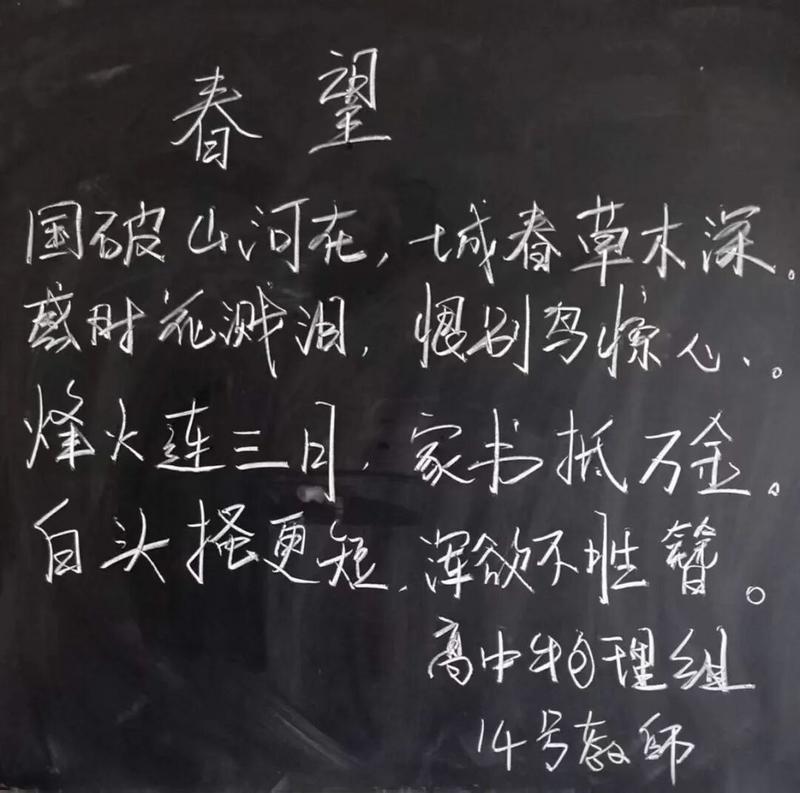 春望
国破山河在，城春草木深。
感时花溅泪，恨别鸟惊心。
烽火连三月，家书抵万金。
白头搔更短，浑欲不胜簪。
高中物理组
14号教师